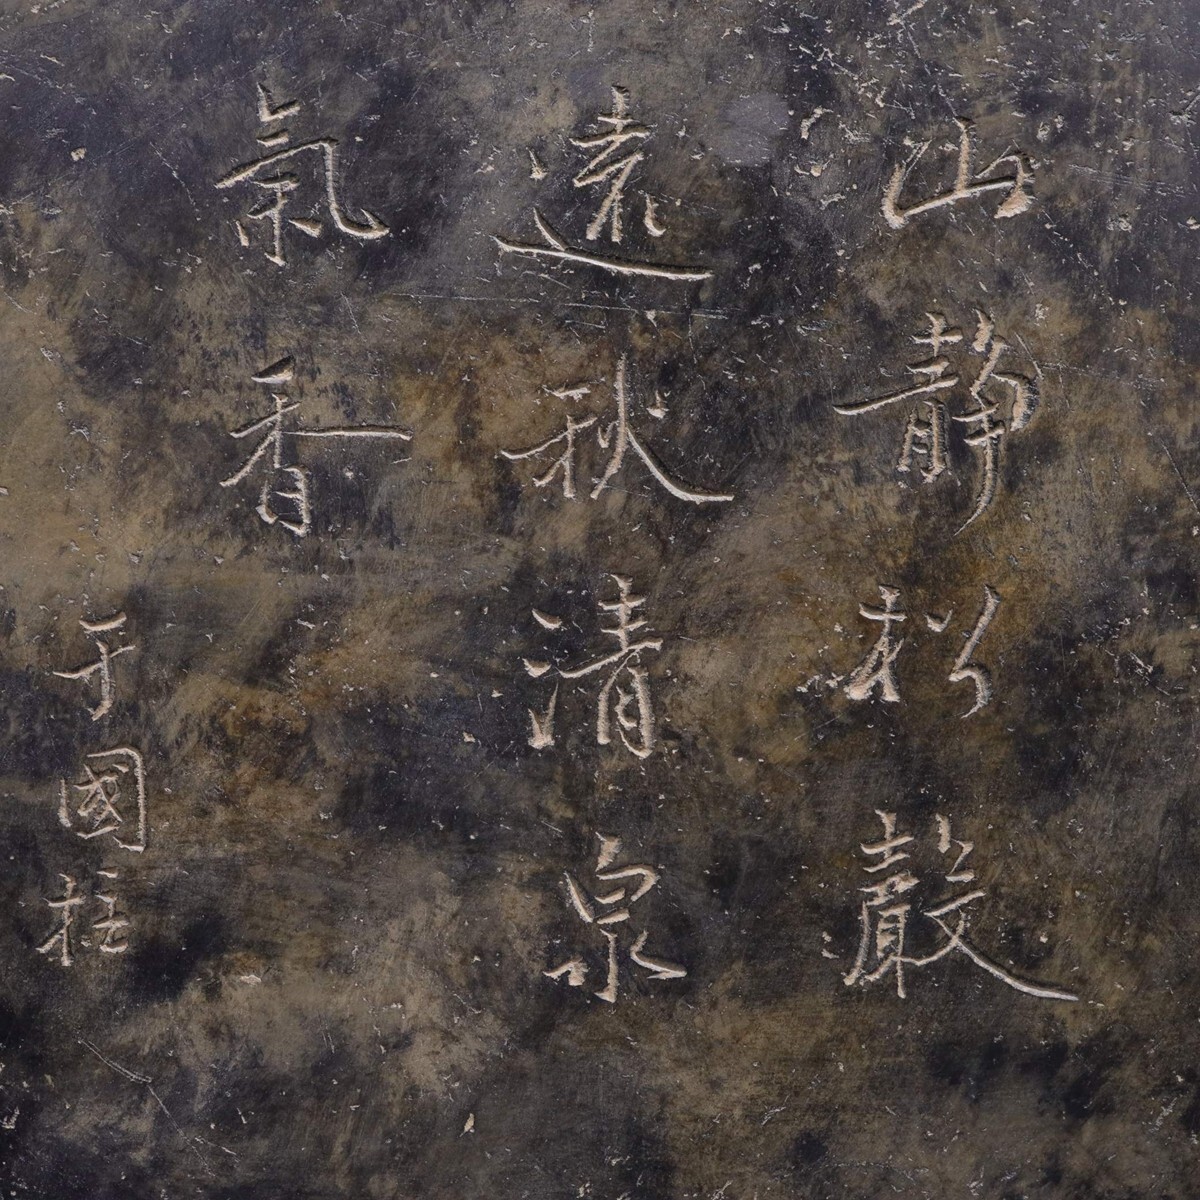 山靜松聲
遠秋清泉
氣香
于國柱